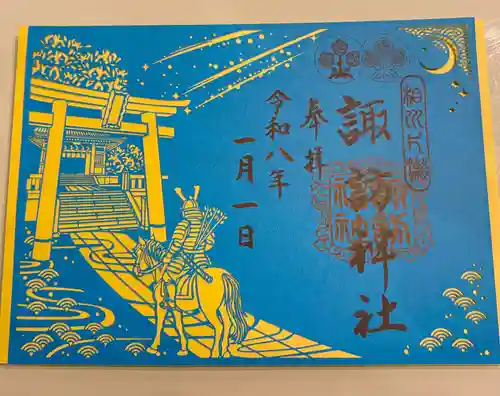 相州片瀬
諏訪神社
奉拝
令和八年
一月一日